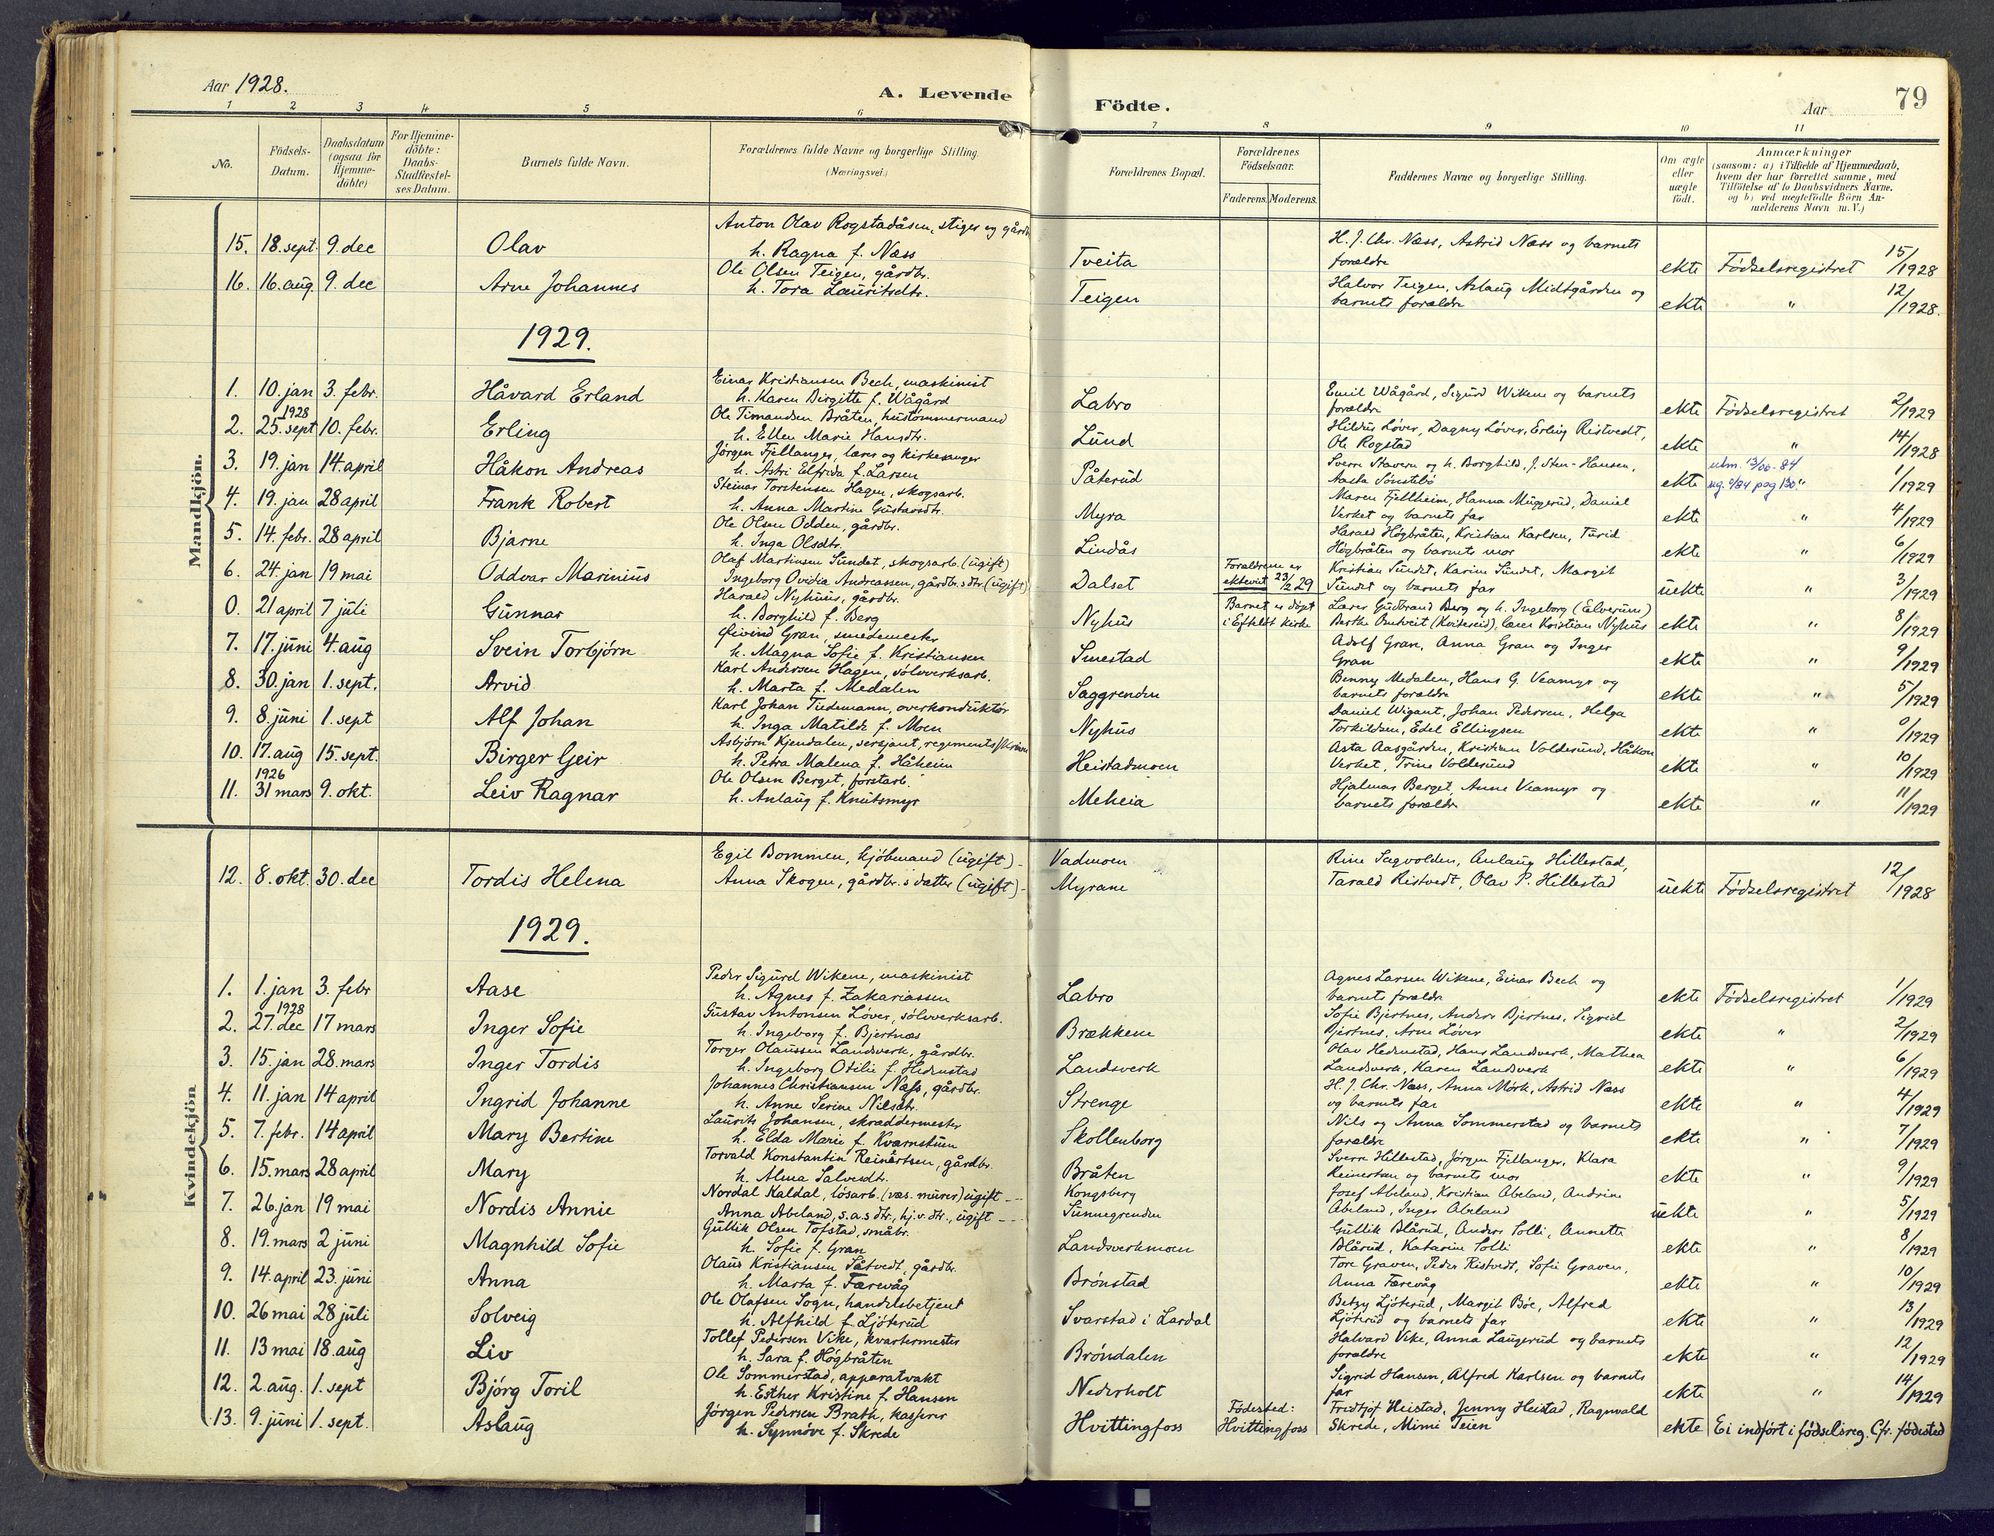 Aar 1928.
A. Levende Födte.
Aar
79
1 2 3 4 5 6 7 8 9 10 11
No.
Födsels-Datum.
Daabsdatum (ogsaa for Hjemme-döbte)
For Hjemme-döbte: Daabs-Stadfæstel-ses Datum.
Barnets fulde Navn.
Forældrenes fulde Navne og borgerlige Stilling. (Næringsvei.)
Forældrenes Bopæl.
Forældrenes Födselsaar.
Faderens. Moderens.
Faddernes Navne og borgerlige Stilling.
Om ægte eller uægte födt.
Anmærkninger (saasom: a) i Tilfælde af Hjemmedaab, hvem der har forrettet samme, med Tilföielse af to Daabsvidners Navne. og b) ved uægtefödte Börn An-melderens Navn m. V.)
Mandkjön.
15. 18. sept. 9. dec Olav Anton Olav Rogstadåsen, stiger og gårdb. h. Ragna f. Næss Tveita H. J. Chr. Næss, Astrid Næss og barnets forældre ekte Fødselsregistret 15/1928
16. 16. aug 9. dec Arne Johannes Ole Olsen Teigen, gårdbr. h. Tora Lauritsdtr. Teigen Halvor Teigen, Aslaug Midtgården og barnets forældre ekte " 12/1928.
1929.
1. 10. jan 3. febr. Håvard Erland Einar Kristiansen Bech, maskinist h. Karen Birgitte f. Wågård Labro Emil Wågård, Sigurd Wikene og barnets forældre ekte Fødselsregistret 2/1929
2. 1928 25. sept 10. febr. Erling Ole Timandsen Bråten, hustømmermand h. Ellen Marie Hansdtr. Lund Hildur Løver, Dagny Løver, Erling Ristvedt, Ole Rogstad ekte " 14/1928
3. 19. jan 14. april Håkon Andreas Jörgen Fjellanger, lærer og kirkesanger h. Astri Elfrida f. Larsen Påterud Sverre Stavern og h. Borghild, J. Sten-Hansen, Aasta Sønstebø ekte utm. 13/06-84 " 1/1929
4. 19. jan 28 april Frank Robert Steinar Torstensen Hagen, skogsarb. h. Anna Martine Gustavsdtr. Myra Maren Fjellheim, Hanna Muggerud, Daniel Verket og barnets far ekte " 4/1929
5. 14. febr. 28 april Bjarne Ole Olsen Odden, gårdbr. h. Inga Olsdtr. Lindås Harald Høgbråten, Kristian Karlsen, Turid Høgbråten og barnets mor ekte " 6/1929
6. 24. jan 19 mai Oddvar Marinius Olaf Martinsen Sundet, skogsarb. (ugift) Ingeborg Ovidia Andreassen, gårdbr.s dtr. (ugift) Dalset Forældrene er ektevíet 23/2 29 Kristian Sundet, Karin Sundet, Margit Sundet og barnets far uekte " 3/1929
0. 21 april 7 juli Gunnar Harald Nyhus, gårdbr. h. Borghild f. Berg Nyhus Barnet er døpt i Efteløt kirke Lærer Gudbrand Berg og h. Ingeborg (Elverum) Berthe Omtveit (Kviteseid), Lærer Kristian Nyhus ekte " 8/1929
7. 17. juni 4. aug Svein Torbjørn Øivind Gran, smedemester h. Magna Sofie f. Kristiansen Smestad Adolf Gran, Anna Gran og Inger Gran ekte " 9/1929
8. 30. jan 1. sept. Arvid Karl Andersen Hagen, sølvverksarb. h. Marta f. Medalen Saggrenden Benny Medalen, Hans G. Veamyr og barnets forældre ekte " 5/1929
9. 8. juni 1. sept Alf Johan Karl Johan Tiedemann, overkonduktør h. Inga Matilde f. Moen Nyhus Daniel Wigant, Johan Pedersen, Helga Torkildsen, Edel Ellingsen ekte " 0/1929
10. 17. aug 15. sept. Birger Geir Asbjørn Kjendalen, sersjant, regimentsskriver h. Petra Malena f. Håheim Heistadmoen Asta Aasgården, Kristian Voldesund, Håkon Verket, Trine Voldesund ekte " 10/1929
11. 1926 31 mars 9. okt. Leiv Ragnar Ole Olsen Berget, forstarb. h. Anlaug f. Knutsmyr Meheia Hjalmar Berget, Anne Veamyr og barnets forældre ekte " 11/1929
Kvindekjön
12. 8. okt. 30. dec Tordis Helena Egil Bommen, kjøbmand (ugift) Anna Skogen, gårdbr.s datter (ugift) Vadmoen Myrane Rine Sagvolden, Anlaug Hillestad, Tarald Ristvedt, Olav P. Hillestad uekte Fødselsregistret 12/1928
1929.
1. 1. jan 3. febr Aase Peder Sigurd Wikene, maskinist h. Agnes f. Zakariassen Labro Agnes Larsen Wikene, Einar Bech og barnets forældre ekte Fødselsregistret 1/1929
2. 1928 27. dec 17 mars Inger Sofie Gustav Antonsen Løver, sølvverksarb. h. Ingeborg f. Bjertnæs Brækkene Sofie Bjertnes, Anders Bjertnes, Sigrid Bjertnes, Arne Løver ekte " 2/1929
3. 15. jan 28. mars Inger Tordis Torger Olaussen Landsverk, gårdbr. h. Ingeborg Otilie f. Hedenstad Landsverk Olav Hedenstad, Hans Landsverk, Mathea Landsverk, Karen Landsverk ekte " 6/1929
4. 11. jan 14 april Ingrid Johanne Johannes Christiansen Næss, gårdbr. h. Anne Serine Nilsdtr. Strenge H. J. Chr. Næss, Anna Mørk, Astrid Næss og barnets far ekte " 4/1929
5. 7. febr. 14 april Mary Bertine Laurits Johansen, skræddermester h. Elda Marie f. Kvarnstrøm Skollenborg Nils og Anna Sommerstad og barnets forældre ekte " 7/1929
6. 15. mars 28 april Mary Torvald Konstantin Reinertsen, gårdbr. h. Alma Salvesdtr. Bråten Sverre Hillestad, Jørgen Fjellanger, Klara Reinertsen og barnets mor ekte " 9/1929
7. 26. jan 19 mai Nordis Annie Nordal Kaldal, løsarb. (væs. murer) ugift Anna Abeland, s.a.s dtr., hj. v. dtr., ugift Kongsberg Sunnegrenden Josef Abeland, Kristian Abeland, Andrine Abeland, Inger Abeland uekte " 5/1929
8. 19. mars 2 juni Magnhild Sofie Gullik Olsen Tofstad, småbr. h. Sofie f. Gran Landsverkmoen Gullik Blårud, Anders Solli, Annette Blårud, Katarine Solli ekte " 8/1929
9. 14. april 23. juni Anna Olaus Kristiansen Såtvedt, gårdbr. h. Marta f. Færevåg Brønstad Tore Graven, Peder Ristvedt, Sofie Graven, Anna Færevåg ekte " 10/1929
10. 26 mai 28 juli Solveig Ole Olafsen Sogn, handelsbetjent h. Alfhild f. Ljøterud Svarstad i Lardal Betzy Ljøterud, Margit Bøe, Alfred Ljøterud og barnets far ekte " 13/1929
11. 13 mai 18. aug Liv Tollef Pedersen Vike, kvartermester h. Sara f. Høgbråten Brøndalen Halvard Vike, Anna Laugerud og barnets forældre ekte " 12/1929
12. 2. aug. 1. sept Bjørg Toril Ole Sommerstad, apparatvakt h. Esther Kristine f. Hansen Nederholt Sigrid Hansen, Alfred Karlsen og barnets far ekte " 14/1929
13. 9. juni 1. sept. Aslaug Jørgen Pedersen Bråth, kasserer h. Synnøve f. Skrede Hvittingfoss Fødested: Hvittingfoss Fridtjof Heistad, Jenny Heistad, Ragnvald Skrede, Mimi Teien ekte Ei indført i fødselsreg. Cfr. fødested